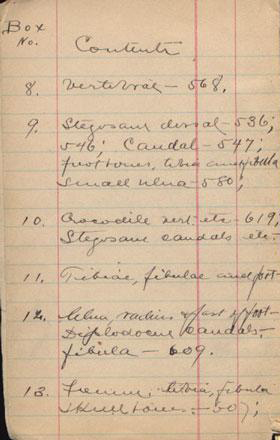 Box
No.
Contents
8. Vertebrae - 568.
9. Stegosaur dorsal - 536;
546; Caudal - 547;
foot bones, tibia and fibula
small ulna - 580;
10. Crocodile vert. etc - 619;
Stegosaur caudals etc.
11. Tibiae, fibulae and foot-
12. Ulna, radius & part of foot-
Diplodocus caudals.
fibula - 609.
13. Femur, tibia, fibula
skull bones - 507;